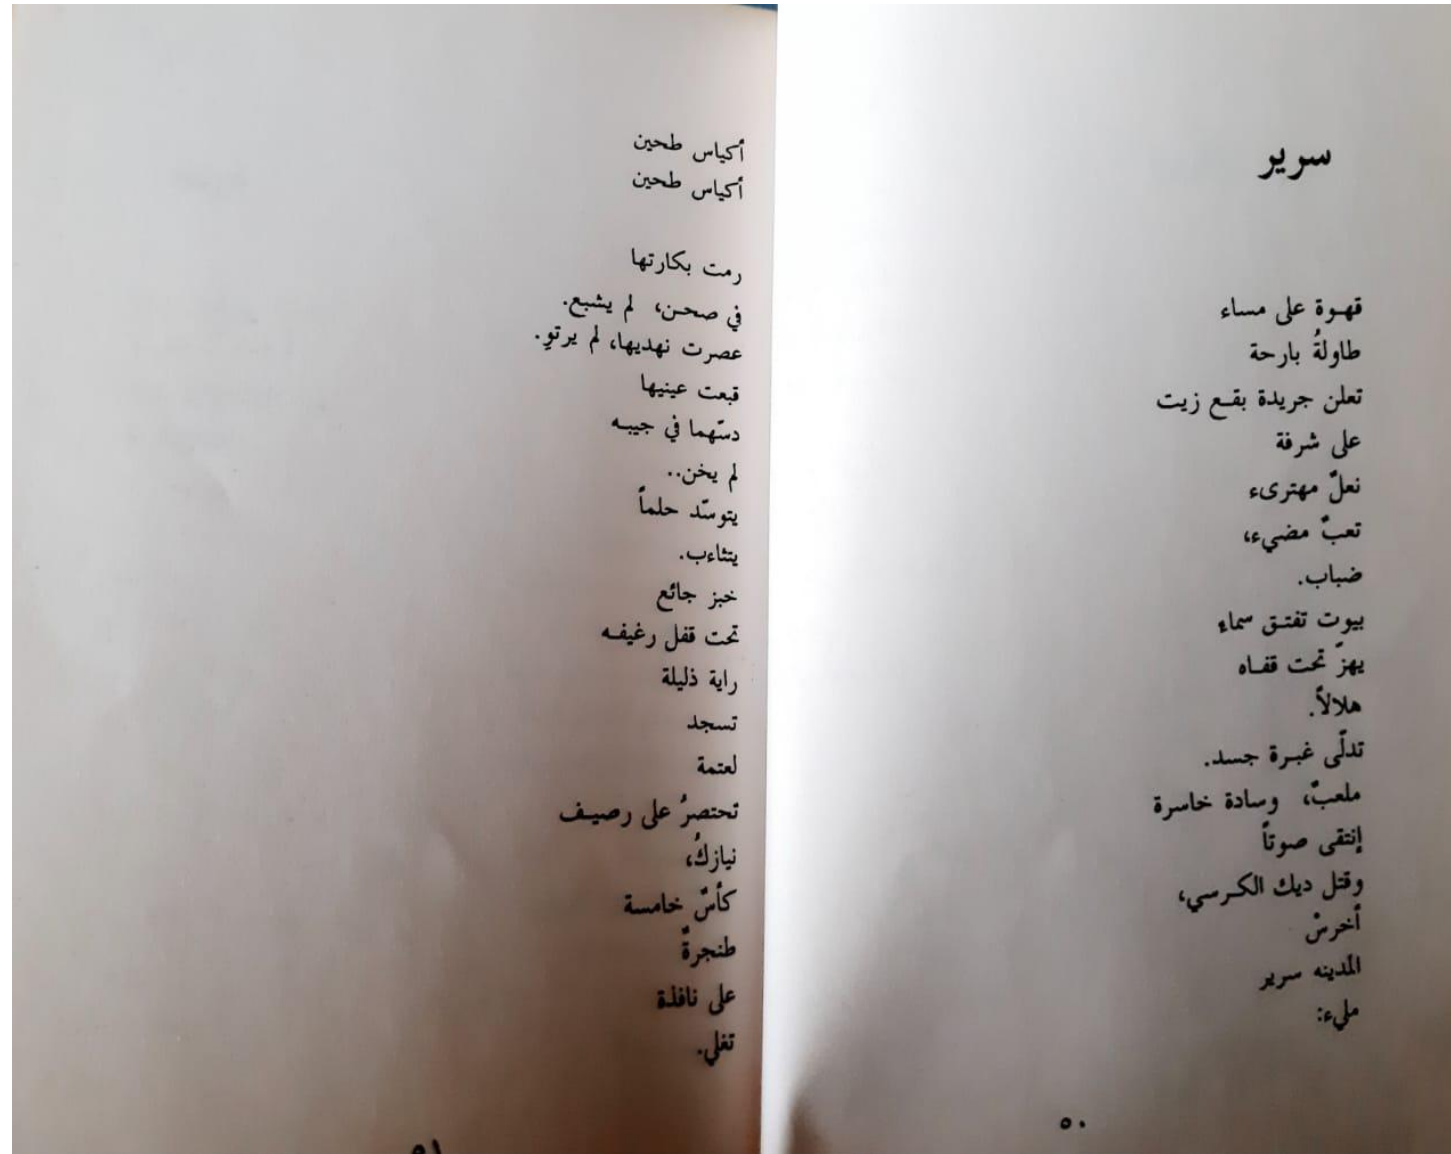 سرير
قهوة على مساء
طاولةُ بارحة
تعلن جريدة بقع زيت
على شرفة
نعلٌ مهترىء
تعبٌ مضيء،
ضباب.
بيوت تفتق سماءٍ
يهزّ تحت قفاه
هلالاً.
تدلّى غبرة جسد.
ملعبٌ، وسادة خاسرة
إنتقى صوتاً
وقتل ديك الكرسي،
أخرسْ
المدينه سرير
مليء:
٥٠
أكياس طحين
أكياس طحين
رمت بكارتها
في صحن، لم يشبع.
عصرت نهديها، لم يرتوِ.
قبعت عينيها
دسّهما في جيبه
لم يخن..
يتوسّد حلماً
يتثاءب.
خبز جائع
تحت قفل رغيفه
راية ذليلة
تسجد
لعتمة
تحتصرُ على رصيف
نيازكُ،
كأسٌ خامسة
طنجرةٌ
على نافذة
تغلي.
٥١